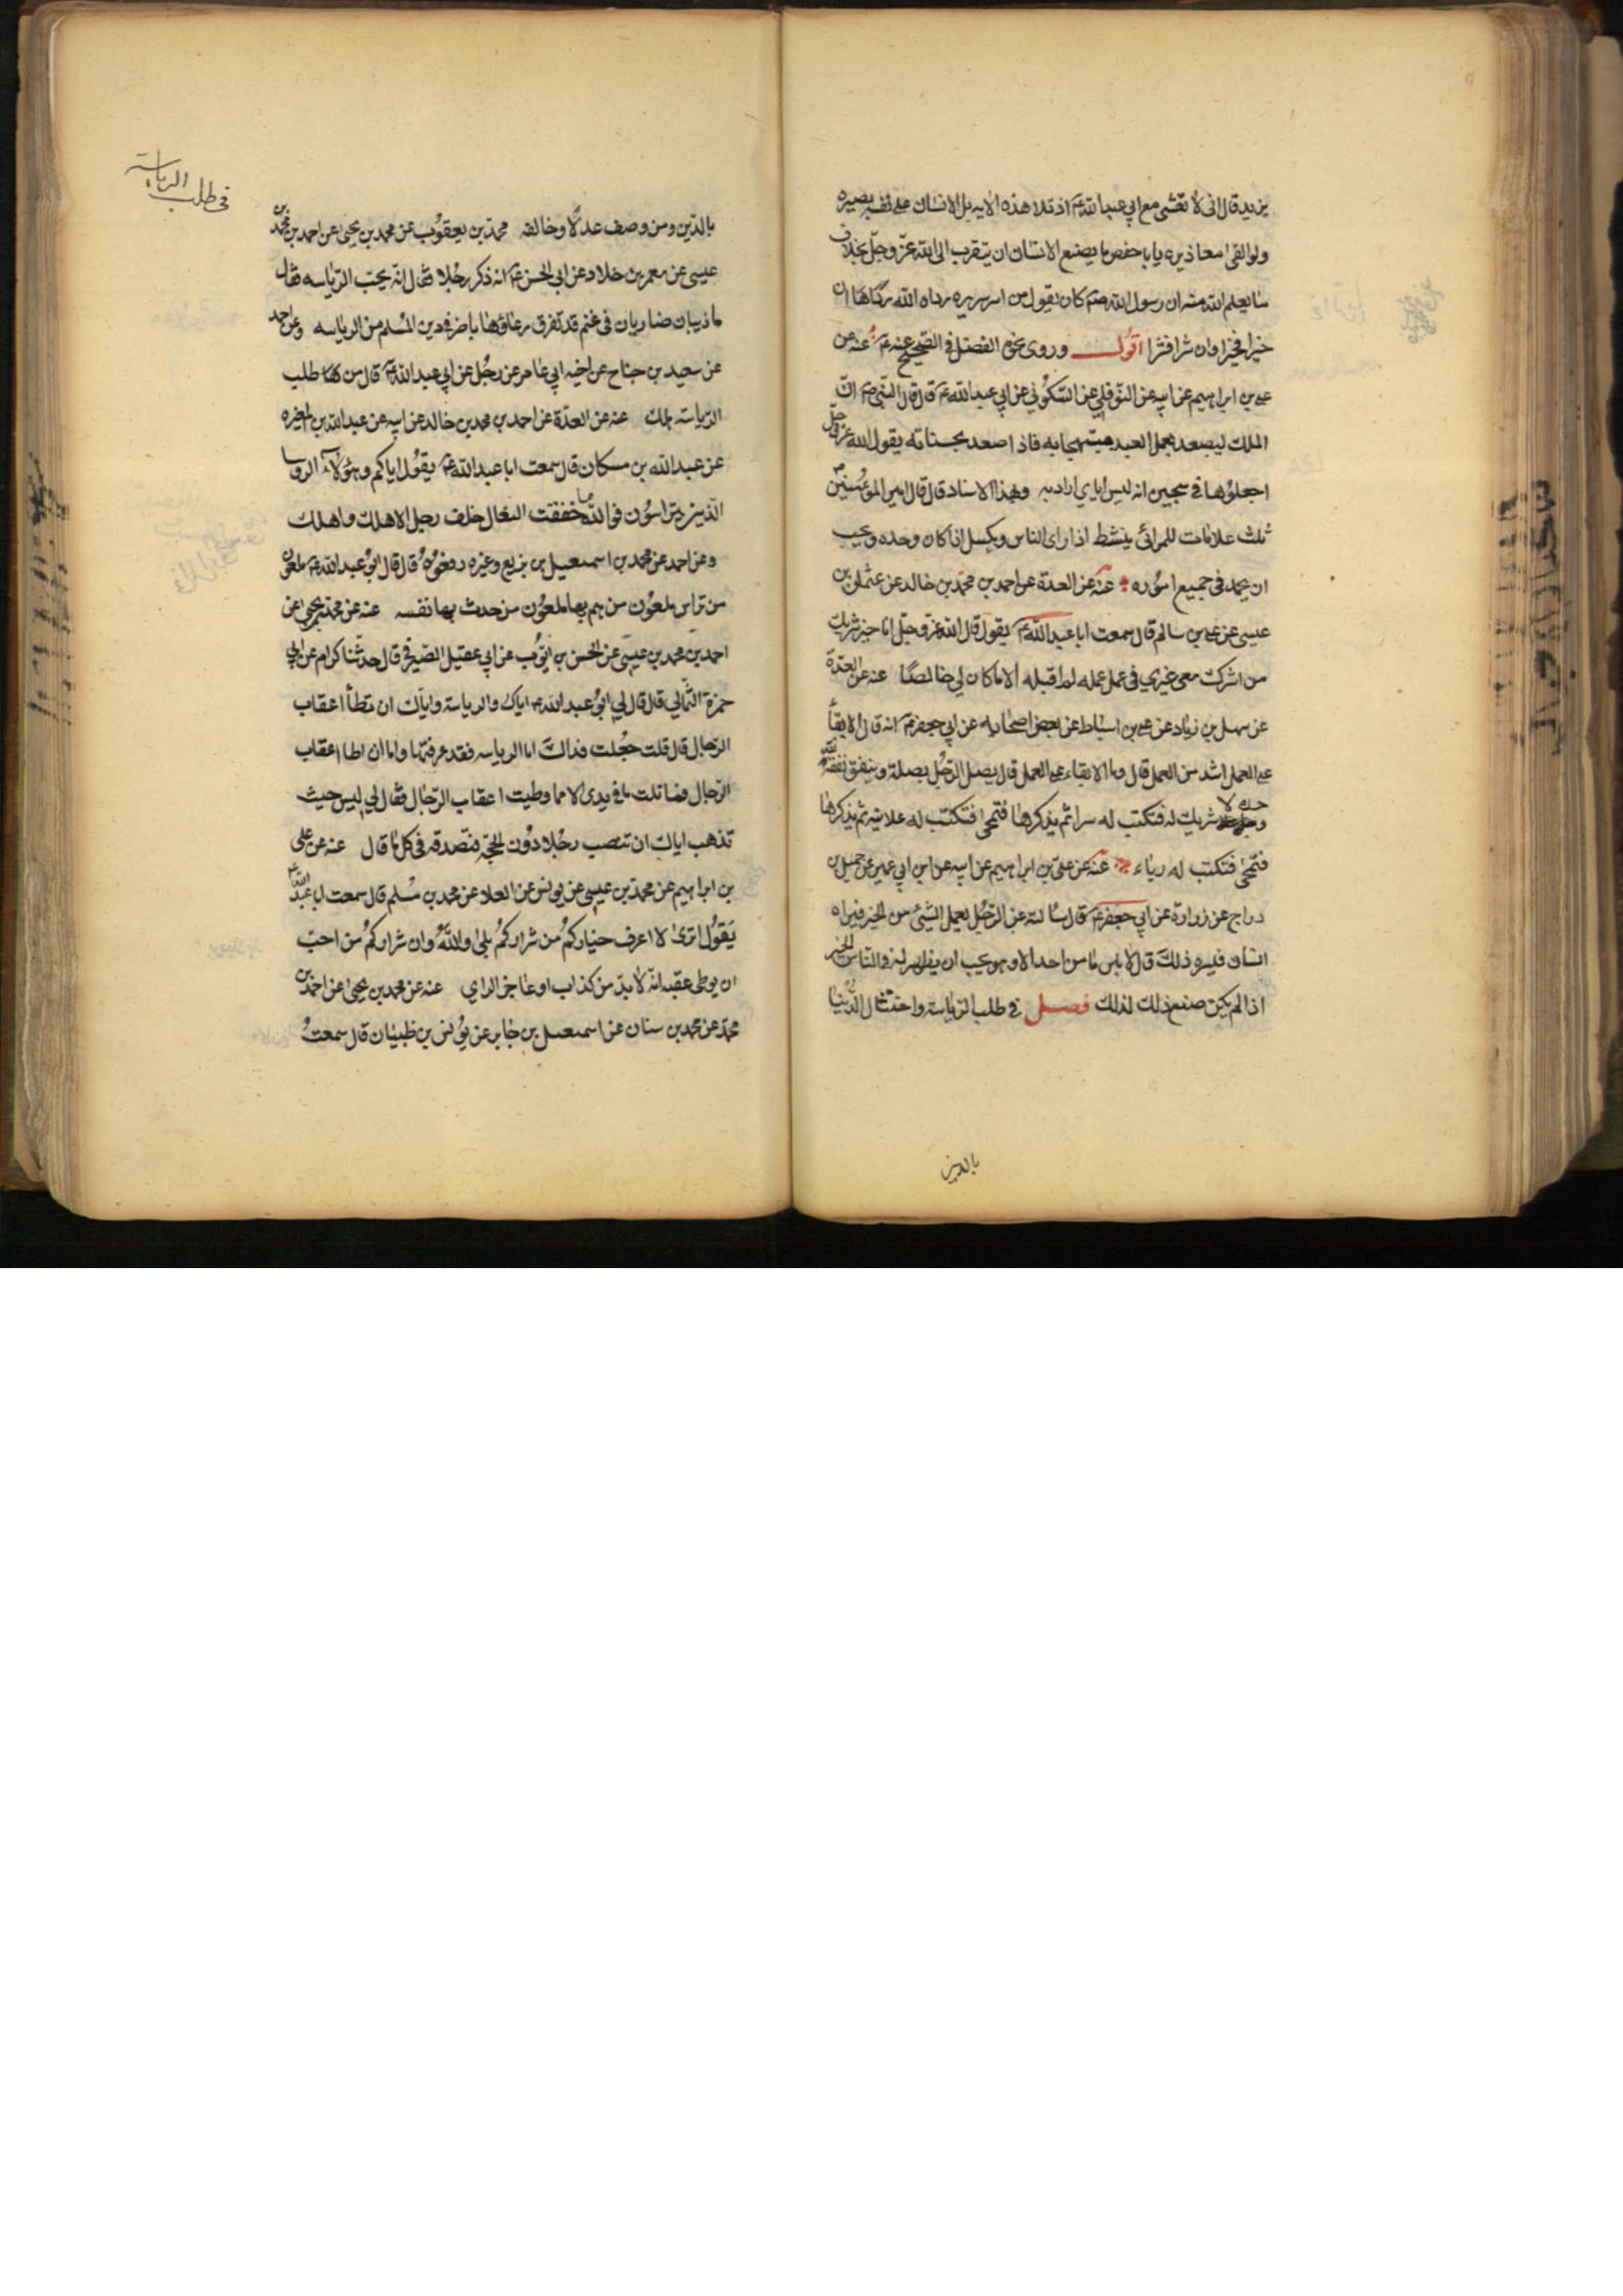 يزيد قال انى لا تعشى مع ابي عبد الله ع اذ تلا هذه الايه بل الانسان على نفسه بصيره
ولو القى معاذيره يابا حفص ما يصنع الانسان ان يتقرب الى الله عزّ وجلّ بخلاف
ما يعلم الله منه ان رسول الله صم كان يقول من اسر سريره رداه الله رداها ان
خيرا فخيرا وان شرا فشرا اقول وروى نحوه الفضل فى الصحيح عنه ع عنه عن
على بن ابراهيم عن ابيه عن النوفلي عن السكوني عن ابي عبد الله ع قال قال النبى ص انّ
الملك ليصعد بعمل العبد مبتهجا به فاذا صعد بحسناته يقول الله عزّ وجلّ
اجعلوها فى سجين انه ليس اياى اراد به وبهذا الاسناد قال قال امير المؤمنين ع
ثلث علامات للمرائى ينشط اذا راى الناس ويكسل اذا كان وحده ويحب
ان يحمد فى جميع اموره عنه عن العدة عن احمد بن محمّد بن خالد عن عثمان بن
عيسى عن على بن سالم قال سمعت ابا عبد الله ع يقول قال الله عز وجلّ انا خير شريك
من اشرك معى غيري فى عمل عمله لم اقبله الا ما كان لي خالصًا عنه عن العدّة
عن سهل بن زياد عن على بن اسباط عن بعض اصحابه عن ابي جعفر ع انه قال الابقاء
على العمل اشد من العمل قال وما الابقاء على العمل قال يصل الرجُل بصلة وينفق نفقة لله
وحده لا شريك له فتكتب له سرا ثم يذكرها فتمحى فتكتب له علانية ثم يذكرها
فتمحى فتكتب له رياء عنه عن علىّ بن ابراهيم عن ابيه عن ابن ابي عمير عن جميل بن
دراج عن زرارة عن ابي جعفر ع قال سالته عن الرجُل يعمل الشئ من الخير فيراه
انسان فيسره ذلك قال لا باس ما من احد الا وهو يحب ان يظهر له فى الناس الخير
اذا لم يكن صنع ذلك لذلك فصل في طلب الرياسة واختتال الدنيا
بالدين
فى طلب الرياسة
بالدّين ومن وصف عدلًا وخالفه محمّد بن يعقوب عن محمد بن يحيى عن احمد بن محمّد بن
عيسى عن معمر بن خلاد عن ابى الحسن ع انه ذكر رجُلا فقال انّه يحبّ الرّياسه فقال
ما ذيبان ضاريان فى غنم قد تفرق رعاؤها باضر فى دين المُسلم من الرياسه وعن احمد
عن سعيد بن جناح عن اخيه ابي عامر عن رجُل عن ابي عبد الله ع قال من طلب
الرياسة هلك عنه عن العدّة عن احمد بن محمد بن خالد عن ابيه عن عبد الله بن المغيره
عن عبد الله بن مسكان قال سمعت ابا عبد الله ع يقُول اياكم وهؤلاء الروسا
الّذين يتراسُون فو الله ما خفقت النعال خلف رجل الا هلك واهلك
وعن احمد عن محمد بن اسمعيل بن بزيع وغيره رفعُوه قال قال ابُو عبد الله ع ملعون
من تراس ملعُون من هم بها ملعُون من حدث بها نفسه عنه عن محمّد بن يحيى عن
احمد بن محمد بن عيسى عن الحسن بن ايّوب عن ابي عقيل الصيرفى قال حدّثنا كرام عن ابي
حمزة الثّمالي قال قال لي ابُو عبد الله ع اياك والرياسة وايّاك ان تطأ اعقاب
الرّجال قال قلت جُعلت فداك اما الرياسه فقد عرفتها واما ان اطا اعقاب
الرّجال فما ثلثا ما فى يدى الا مما وطيت اعقاب الرّجال فقال لي ليس حيث
تذهب اياك ان تنصب رجُلا دُون الحجّه فتصدقه فى كل ما قال عنه عن على
بن ابراهيم عن محمّد بن عيسى عن يونس عن العلا عن محمد بن مسْلم قال سمعت ابا عبد الله ع
يَقوُل اترى لا اعرف خياركُم من شراركُم بلى والله وان شراركُم من احبّ
ان يوطى عقبه انّه لا بد من كذاب او عاجز الراي عنه عن محمد بن يحيى عن احمد بن
محمّد عن محمد بن سنان عن اسمعيل بن جابر عن يُونس بن ظبيان قال سمعتُ